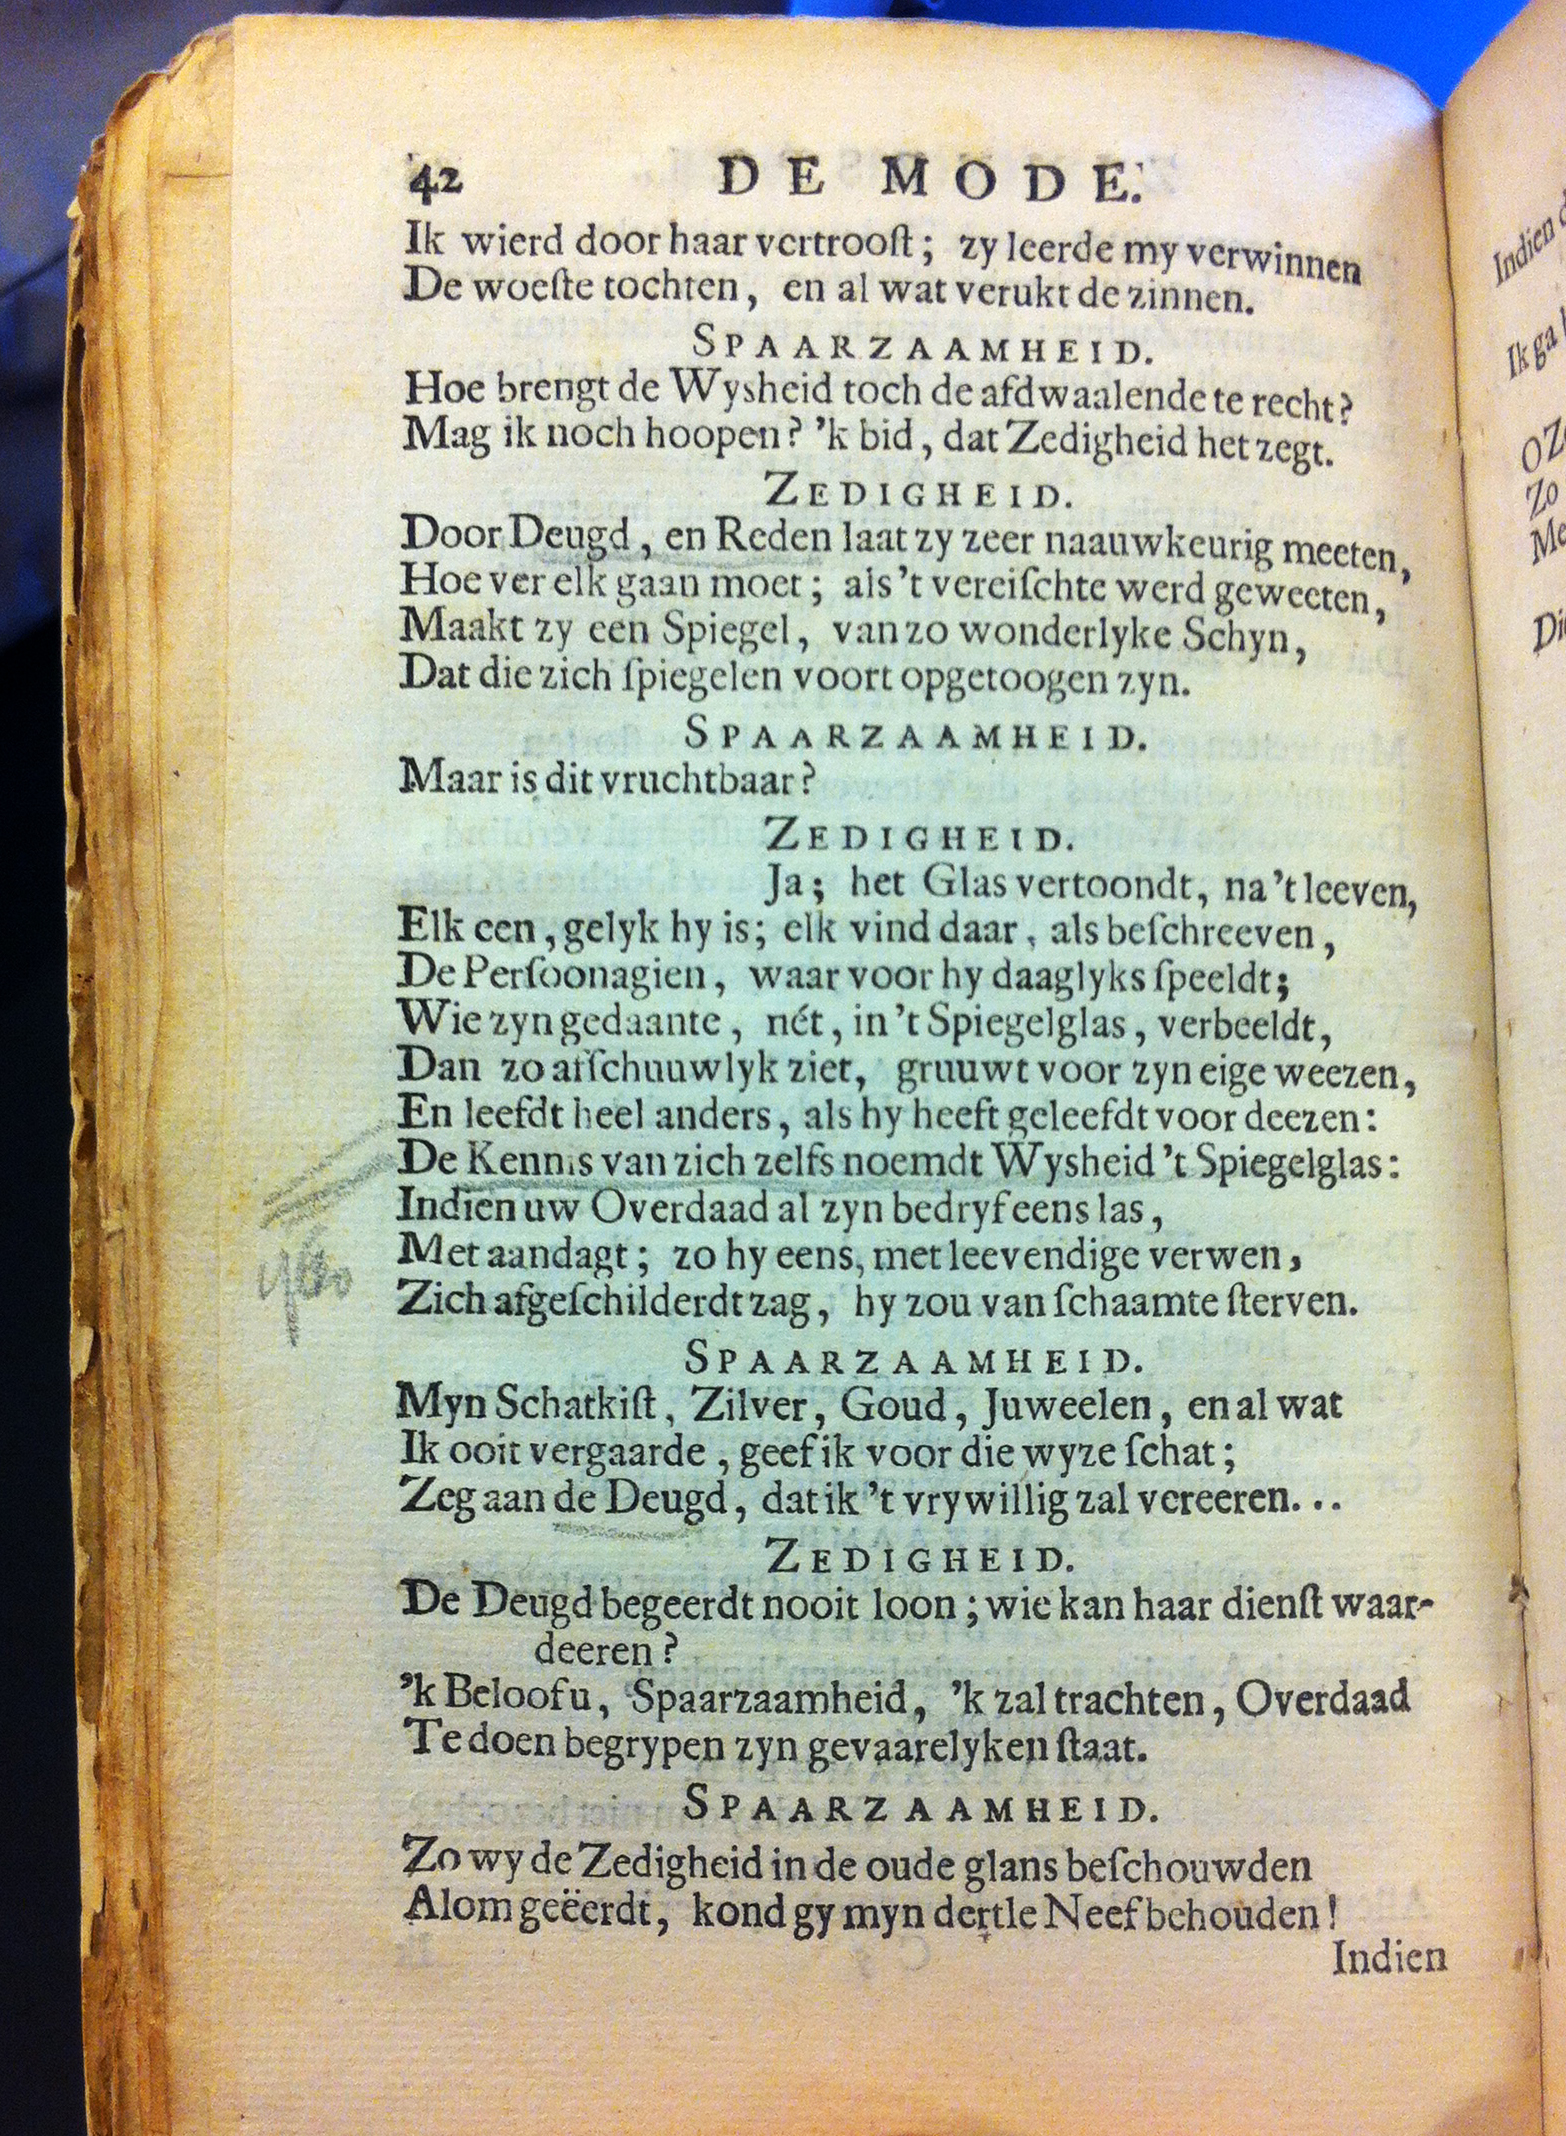 42 DE MODE.
Ik wierd door haar vertrooſt; zy leerde my verwinnen
De woeſte tochten, en al wat verukt de zinnen.
SPAARZAAMHEID.
Hoe brengt de Wysheid toch de afdwaalende te recht?
Mag ik noch hoopen? 'k bid, dat Zedigheid het zegt.
ZEDIGHEID.
Door Deugd, en Reden laat zy zeer naauwkeurig meeten,
Hoe ver elk gaan moet; als 't vereiſchte werd geweeten,
Maakt zy een Spiegel, van zo wonderlyke Schyn,
Dat die zich ſpiegelen voort opgetoogen zyn.
SPAARZAAMHEID.
Maar is dit vruchtbaar?
ZEDIGHEID.
Ja; het Glas vertoondt, na 't leeven,
Elk een, gelyk hy is; elk vind daar, als beſchreeven,
De Perſoonagien, waar voor hy daaglyks ſpeeldt;
Wie zyn gedaante, nét, in 't Spiegelglas, verbeeldt,
Dan zo afſchuuwlyk ziet, gruuwt voor zyn eige weezen,
En leefdt heel anders, als hy heeft geleefdt voor deezen:
De Kennis van zich zelfs noemdt Wysheid 't Spiegelglas:
Indien uw Overdaad al zyn bedryf eens las,
Met aandagt; zo hy eens, met leevendige verwen,
Zich afgeſchilderdt zag, hy zou van ſchaamte ſterven.
SPAARZAAMHEID.
Myn Schatkiſt, Zilver, Goud, Juweelen, en al wat
Ik ooit vergaarde, geef ik voor die wyze ſchat;
Zeg aan de Deugd, dat ik 't vrywillig zal vereeren...
ZEDIGHEID.
De Deugd begeerdt nooit loon; wie kan haar dienſt waar-
deeren?
'k Beloof u, Spaarzaamheid, 'k zal trachten, Overdaad
Te doen begrypen zyn gevaarelyken ſtaat.
SPAARZAAMHEID.
Zo wy de Zedigheid in de oude glans beſchouwden
Alom geëerdt, kond gy myn dertle Neef behouden!
Indien
Indien
Ik ga
OZ
Zo
Me